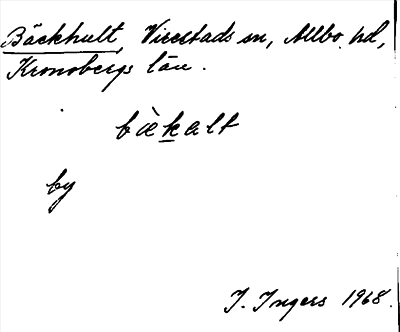 Bäckhult, Virestads sn, Allbo hd,
Kronobergs län.
bὲkalt
by
I. Ingers 1968.